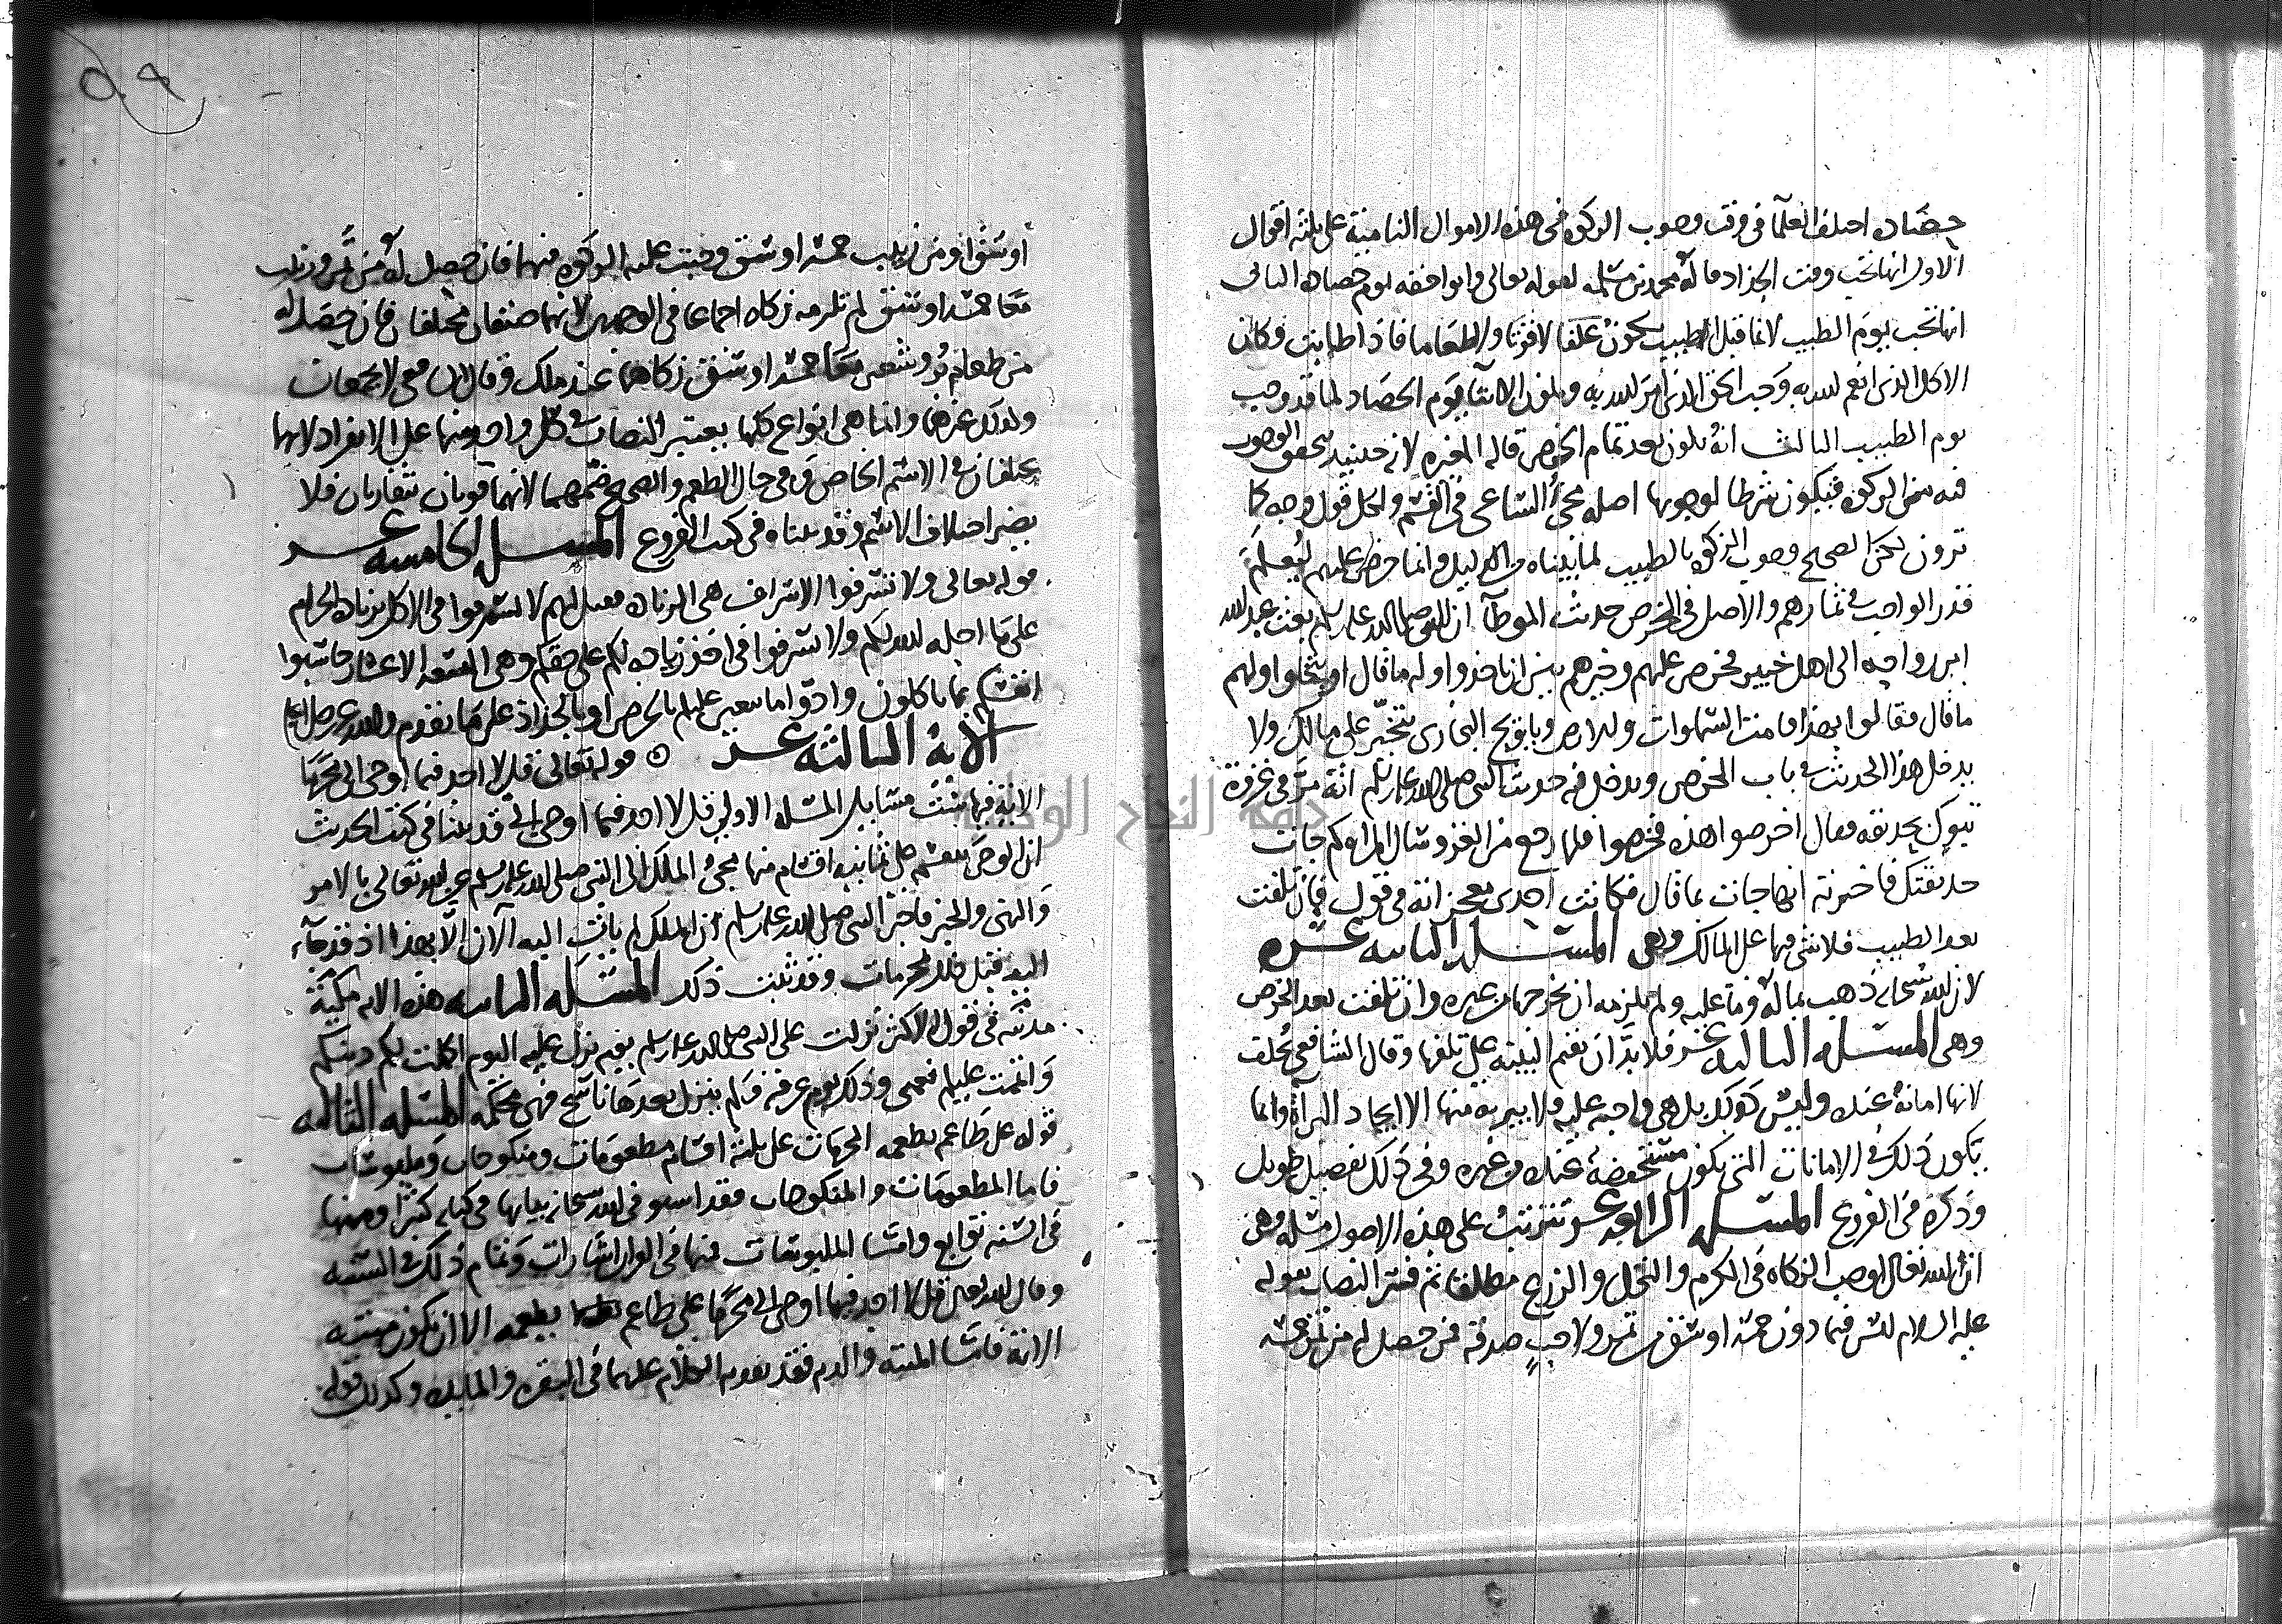 حصاده احتلف العلما فى وقت وجوب الزكوة فى هذه الاموال النامية على ثلثة اقوال
الاول انها تجب وقت الجذاد قاله محمد بن مسلمه لقوله تعالى واتوا حقه يوم حصاده الثانى
انها تجب يوم الطيب لانما قبل الطيب يكون علفا لا قوتا ولا طعاما فاذا طابت وكان
الاكل الذى انعم الله به وجب الحق الذى امر الله به ويكون الايتا يوم الحصاد لما قد وجب
يوم الطيب الثالث انه يكون بعد تمام الخرص قاله المغيره لانه حينيذ يتحقق الوجوب
فيه من الزكوة فيكون شرطا لوجوبها اصله مجى الساعى فى الغنم ولكل قول وجه كما
ترون لكن الصحيح وجوب الزكوة بالطيب لما بيناه من الدليل وانما خرص عليهم ليعلم
قدر الواجب فى ثمارهم والاصل فى الخرص حديث الموطا ان النبى صلى الله عليه وسلم بعث عبد الله
ابن رواحه الى اهل خيبر فخرص عليهم وخيرهم بين ان ياخذوا وله ما قال او يتخلوا ولهم
ما قال فقالوا بهذا قامت السماوات والارض وبا توبح البخارى على مالك ولا
يدخل هذا الحديث فى باب الخرص ويدخل فيه حديث النبى صلى الله عليه وسلم انه مر فى غزوة
تبوك بحديقه فقال اخرصوا هذه فخرصوا فلما رجع من الغزو سال المراة كم جات
حديقتك فاخبرته انها جات بما قال فكانت احدى معجزاته فى قول فان تلفت
بعد الطيب فلا شى فيها على المالك وهى المسله الثانيه عشره
لان الله سبحانه ذهب بماله وما عليه ولم يلزمه ان يخرجها من غيره وان تلفت بعد الخرص
وهى المسله الثالثه عشر فلا بد ان يقيم البينه على تلفها وقال الشافعى يحلف
لانها امانة عنده وليس كذلك بل هى واجبه عليه ولا يبريه منها الا ايجاد البراة وانما
يكون ذلك فى الامانات التى تكون مستحفضة عنده من غيره وفى ذلك تفصيل طويل
وذكره فى الفروع المسله الرابعه عشر تترتب على هذه الاصول مسله وهى
ان الله تعالى اوجب الزكاه فى الكرم والنخل والزرع مطلقا ثم فسر النصاب بقوله
عليه السلام ليس فيما دون خمسة اوسق من تمر ولا حب صدقة فمن حصل له من تمر خمسه
اوسق او من زبيب خمسه اوسق وجبت عليه الزكوة فيهما فان حصل له من تمر وزبيب
معا خمسه اوسق لم تلزمه زكاه اجماعا فى الوجهين لانهما صنفان مختلفان فان حصل له
من طعام بر وشعير معا خمسه اوسق زكاهما عند ملك وقال الشافعى لا يجمعان
وكذلك غيرهما وانما هى انواع كلها يعتبر النصاب فى كل واحد منها على الانفراد لانها
يختلفان فى الاسم الخاص وفى حال الطعم والصحيح ضمهما لانهما قوتان يتقاربان فلا
يضر اختلاف الاسم وقد بيناه فى كتب الفروع المسله الخامسه عشر
قوله تعالى ولا تسرفوا الاسراف هى الزياده فقيل لهم لا تسرفوا فى الاكل بزياده الحرام
على ما احله الله لكم ولا تسرفوا فى اخذ زياده لكم على حقكم وهى التسعه الاعشار حاسبوا
انفسكم بما تاكلون وادوا ما تعين عليكم بالخرص او بالجذاذ على ما تقدم والله عز وجل اعلم
الاية الثالثه عشر ٥ قوله تعالى قل لا اجد فيما اوحى الى محرما
الاية فيها ست مسايل المسله الاولى قل لا اجد فيما اوحى الى قد بينا فى كتب الحديث
ان الوحى ينقسم على ثمانيه اقسام منها مجى الملك الى النبى صلى الله عليه وسلم عن الله تعالى بالامر
والنهى والخبر فاخبر النبى صلى الله عليه وسلم ان الملك لم يات اليه الان الا بهذا اذ قد جاء
اليه قبل ذلك محرمات وقد ثبت ذلك المسله الثانيه هذه الايه مكية
مدنيه فى قول الاكثر نزلت على النبى صلى الله عليه وسلم يوم نزل عليه اليوم اكملت لكم دينكم
واتممت عليكم نعمتى وذلك يوم عرفة ولم ينزل بعدها ناسخ فهى محكمه المسله الثالثه
قوله على طاعم يطعمه المحرمات على ثلثه اقسام مطعومات ومنكوحات وملبوسات
فاما المطعومات والمنكوحات فقد استوفى الله سبحانه بيانها فى كتابه كثيرا ومنها
فى السنه توابع واما الملبوسات فمنها فى القران اشارات وتمام ذلك فى السنه
وقال الله تعالى قل لا اجد فيما اوحى الى محرما على طاعم يطعمه الا ان تكون ميته
الاية فاما الميته والدم فقد تقدم الكلام عليهما فى البقره والمايده وكذلك قوله